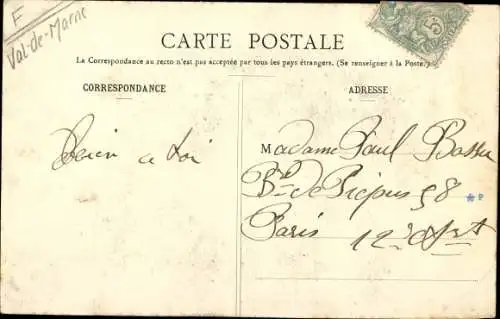 F
Val-de-Marne
5
CARTE POSTALE
La Correspondance au recto n'est pas acceptée par tous les pays étrangers. (Se renseigner à la Poste.)
CORRESPONDANCE
ADRESSE
Bien à toi
Madame Paul Basse
Bd de Picpus 58
*P
Paris 12e Arrt